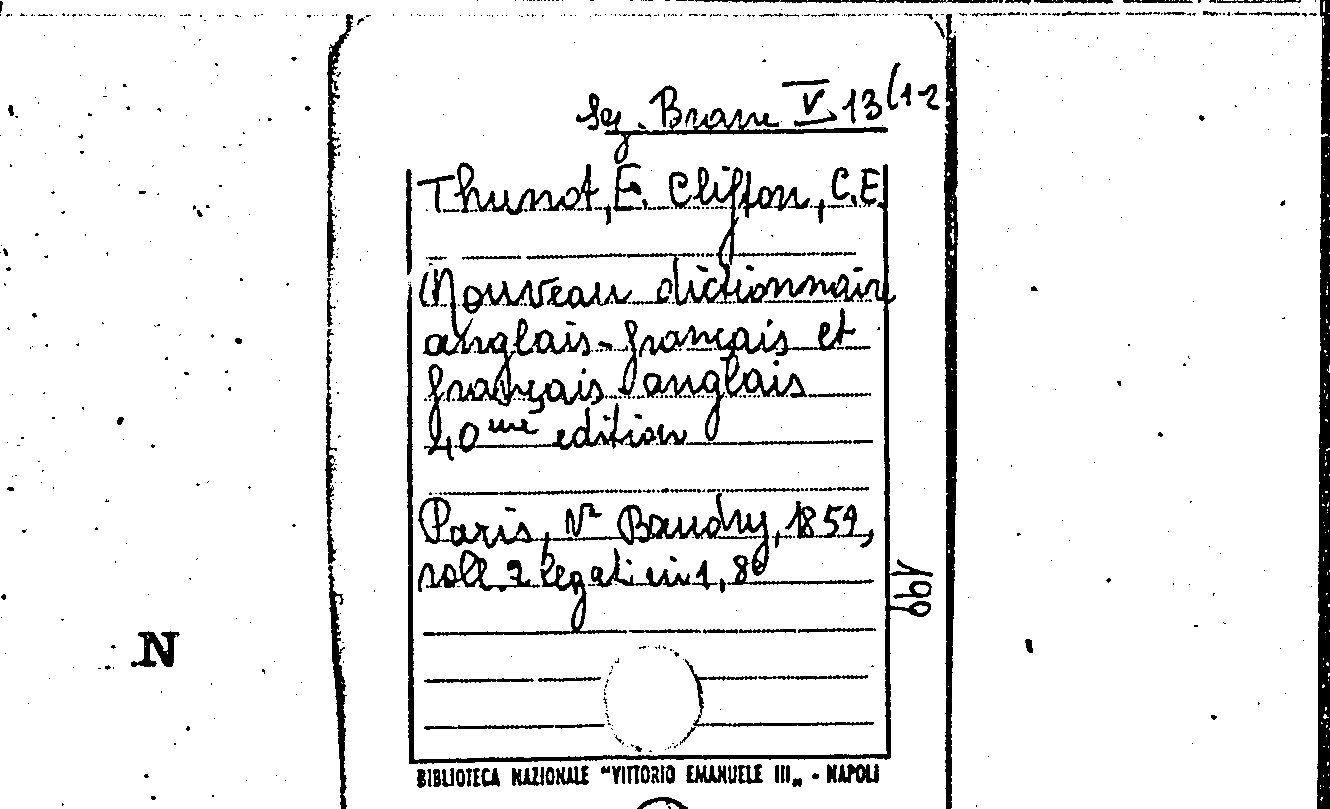 Sg. Brane V 13 (1-2
Thunot, E. Clifton, C.E.
Nouveau dictionnaire
anglais-français et
français-anglais
40me edition
Paris, Vve Baudry, 1859,
voll. 2 legati in 1, 8°
N
BIBLIOTECA NAZIONALE "VITTORIO EMANUELE III„ - NAPOLI